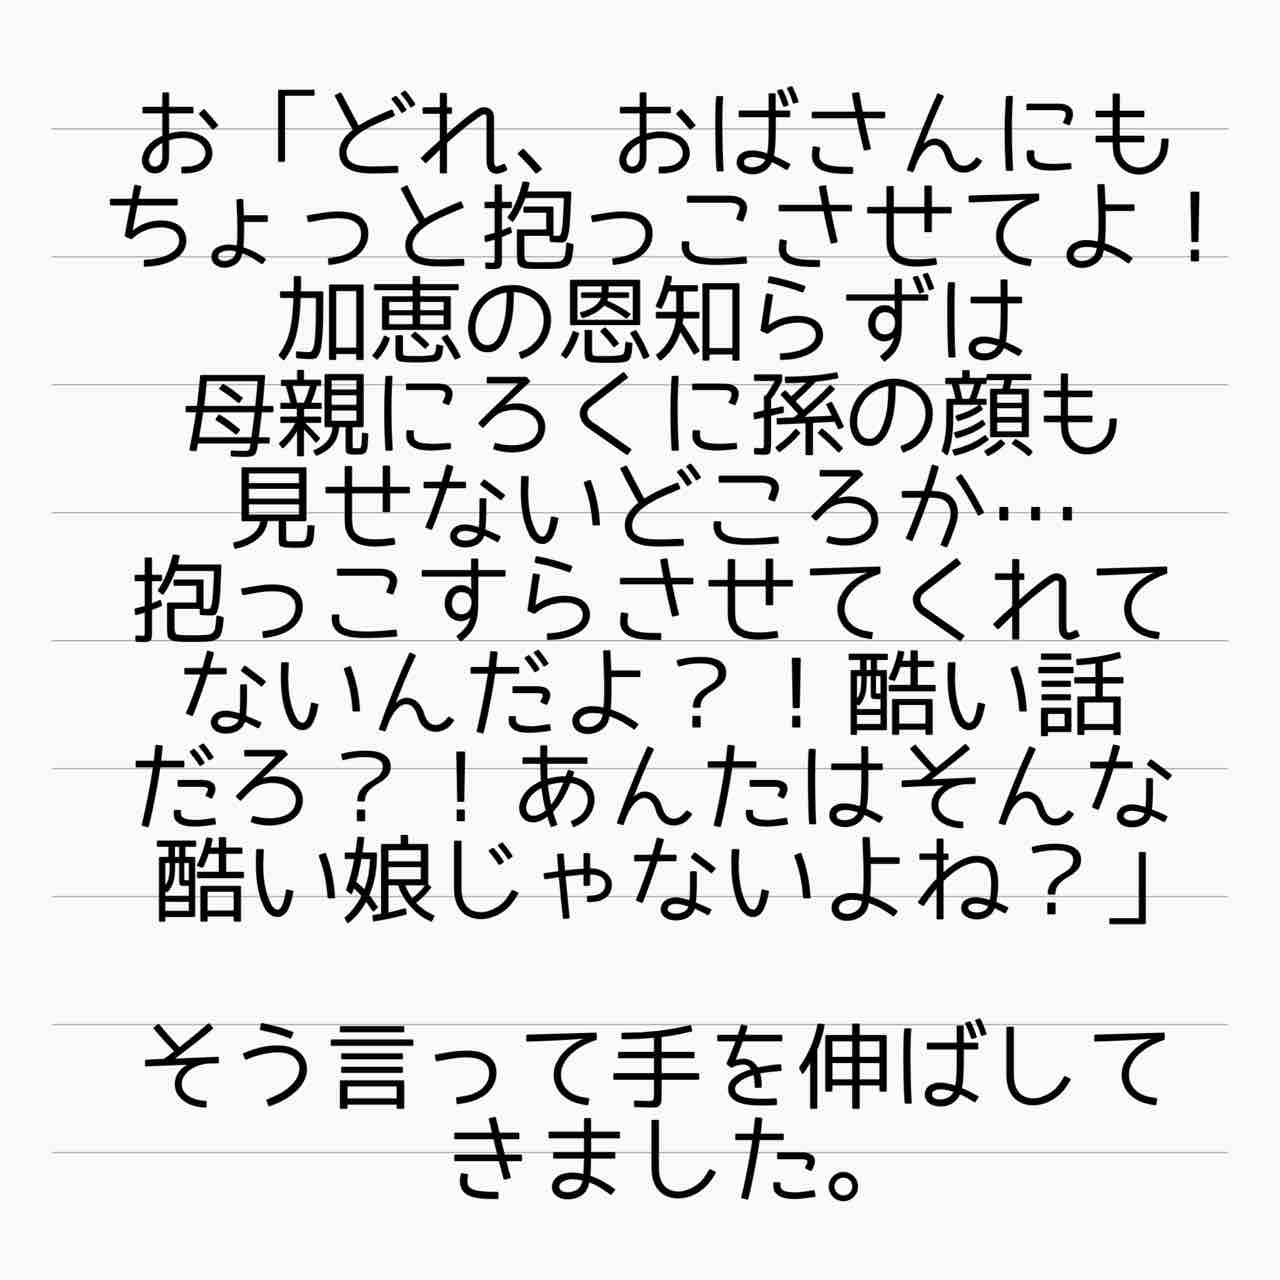 お「どれ、おばさんにも
ちょっと抱っこさせてよ！
加恵の恩知らずは
母親にろくに孫の顔も
見せないどころか…
抱っこすらさせてくれて
ないんだよ？！酷い話
だろ？！あんたはそんな
酷い娘じゃないよね？」
そう言って手を伸ばして
きました。